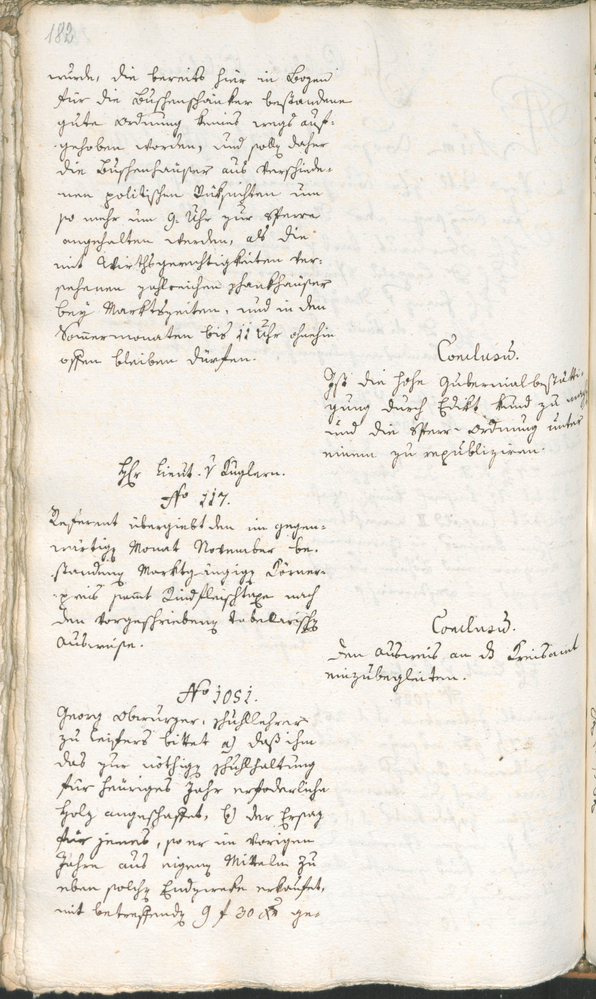 182
wurde, die bereits hier in Bozen
für die Buschenschänker bestandene
gute Ordnung keines wegs auf-
gehoben worden, und soll daher
die Buschenhäuser aus verschiede-
nen politischen Rüksichten um
so mehr um 9. Uhr zur Sperre
angehalten werden, als die
mit Wirthsgerechtigkeiten ver-
sehenen zahlreichen Schankhäuser
bey Marktszeiten, und in den
Sommermonaten bis 11 Uhr ohnehin
offen bleiben dürfen.
Conclusū.
Ist die hohe Gubernialbestätti-
gung durch Edikt kund zu
und die Sperr-Ordnung unter
einem zu republiziren.
Hr Lieut. v Kuglern.
No 117.
Referent übergiebt den im gegen-
wärtigen Monat November be-
standenen Marktgängigen Körner-
preis sammt Rindfleischtaxe nach
den vorgeschriebenen tabellarischen
Ausweise.
Conclusū.
Den Ausweis an das Kreisamt
einzubegleiten.
No 1051.
Georg Schullehrer
zu Leifers bittet a) daß ihm
das zur nöthigen Schulhaltung
für heuriges Jahr erforderliche
Holz angeschaffet, b) der Ersaz
für jenes, so er im vorigen
Jahre aus eigenen Mitteln zu
eben solchen Endzwecke erkaufet,
mit betreffenden 9 f 30 xr ge-